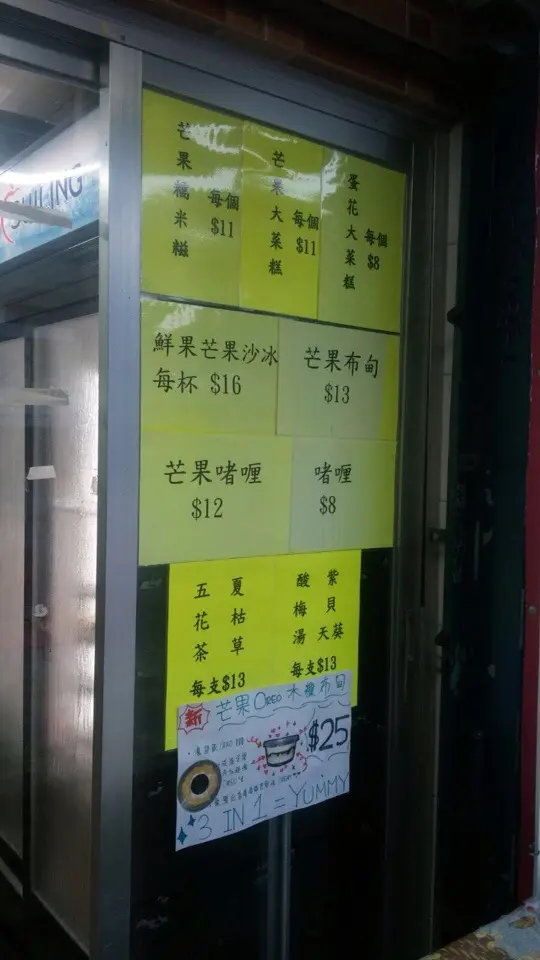 SUILING
芒果糯米糍
每個
$11
芒果大菜糕
每個
$11
蛋花大菜糕
每個
$8
鮮果芒果沙冰
每杯 $16
芒果布甸
$13
芒果啫喱
$12
啫喱
$8
五花茶
夏枯草
每支$13
酸梅湯
紫貝天葵
每支$13
新 芒果OREO木糠布甸
$25
3 IN 1 = YUMMY